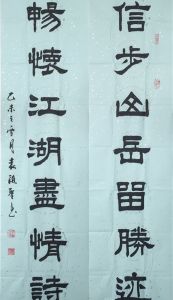 信步山岳留勝迹
暢懷江湖盡情詩
乙未之雪月